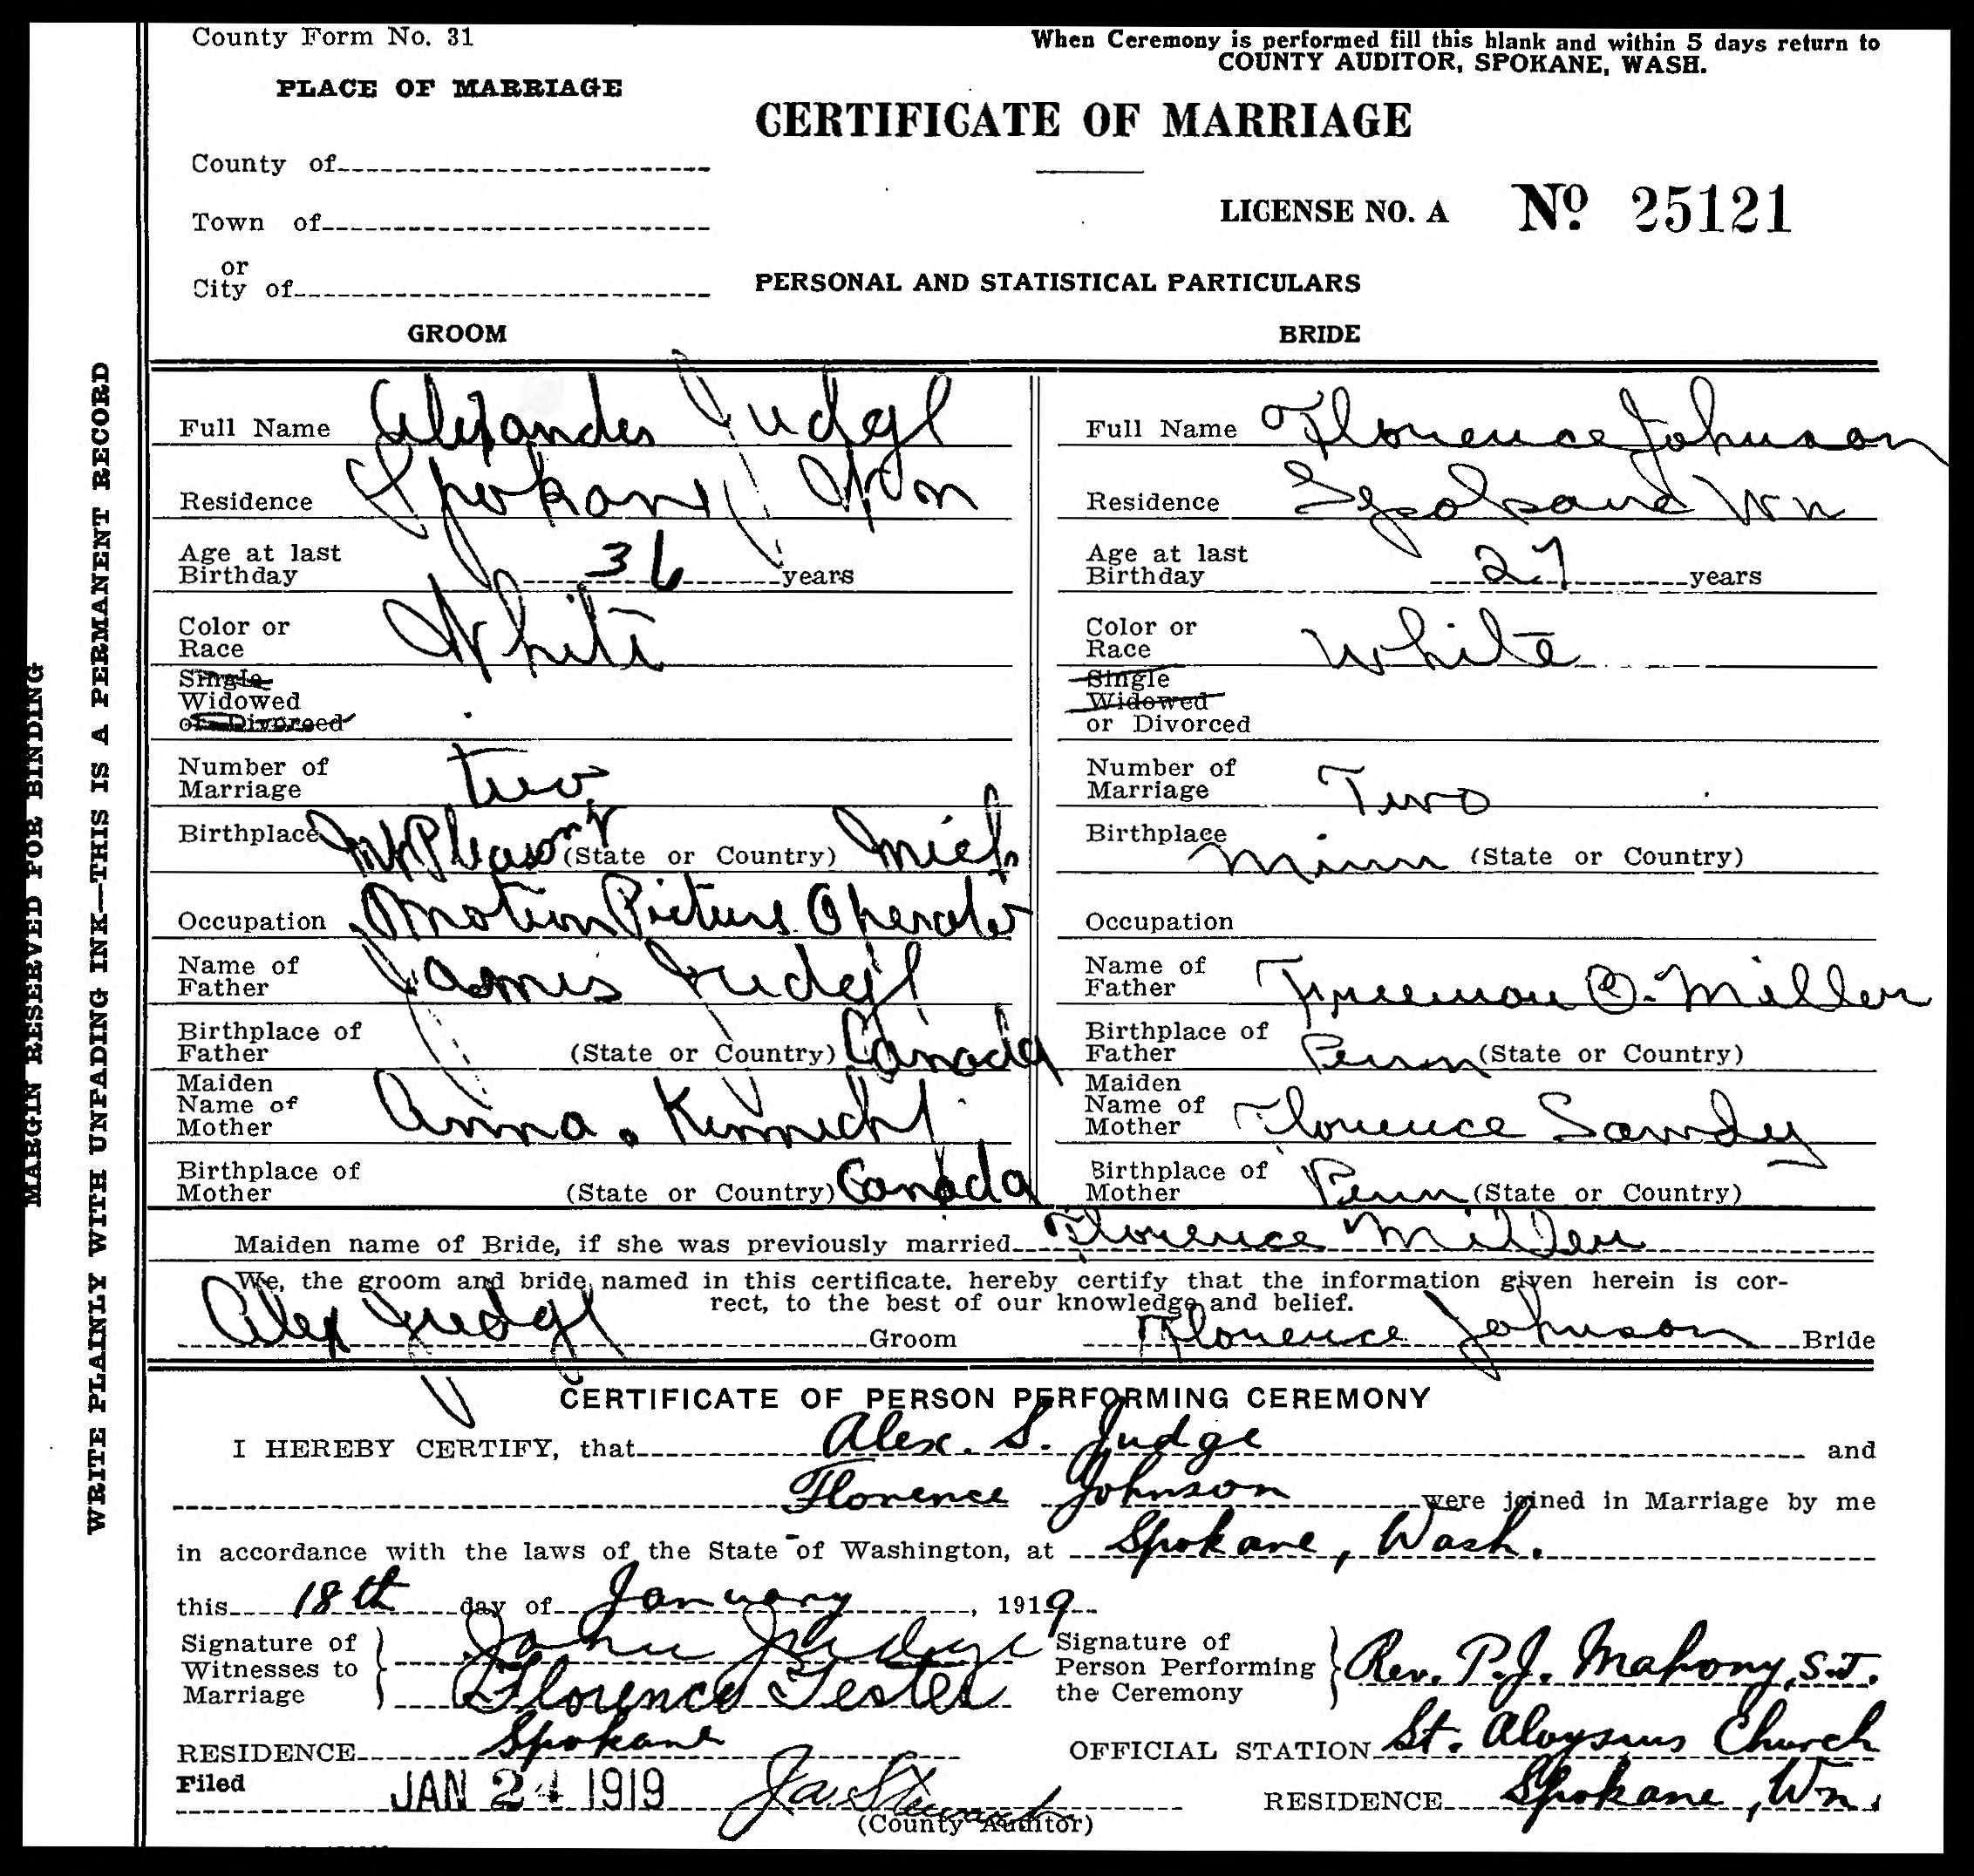 County Form No. 31
When Ceremony is performed fill this blank and within 5 days return to
COUNTY AUDITOR, SPOKANE, WASH.
PLACE OF MARRIAGE
CERTIFICATE OF MARRIAGE
County of
LICENSE NO. A No. 25121
Town of
or
City of
PERSONAL AND STATISTICAL PARTICULARS
GROOM BRIDE
Full Name Alexander Judge
Full Name Florence Johnson
Residence Spokane, Wn
Residence Spokane Wn
Age at last
Birthday 36 years
Age at last
Birthday 27 years
Color or
Race White
Color or
Race White
Single
Widowed
or Divorced
Single
Widowed
or Divorced
Number of
Marriage two
Number of
Marriage Two
Birthplace Mt Pleasant (State or Country) Mich
Birthplace Minn (State or Country)
Occupation Motion Picture Operator
Occupation
Name of
Father James Judge
Name of
Father Freeman O. Miller
Birthplace of
Father (State or Country) Canada
Birthplace of
Father Penn (State or Country)
Maiden
Name of
Mother Anna
Maiden
Name of
Mother Florence Sandy
Birthplace of
Mother (State or Country) Canada
Birthplace of
Mother Penn (State or Country)
Maiden name of Bride, if she was previously married Florence Miller
We, the groom and bride, named in this certificate, hereby certify that the information given herein is cor-
rect, to the best of our knowledge and belief.
Alex Judge Groom Florence Johnson Bride
CERTIFICATE OF PERSON PERFORMING CEREMONY
I HEREBY CERTIFY, that Alex. S. Judge and
Florence Johnson were joined in Marriage by me
in accordance with the laws of the State of Washington, at Spokane, Wash.
this 18th day of January, 1919
Signature of
Witnesses to
Marriage
John Judge
Florence Tester
Signature of
Person Performing
the Ceremony
Rev. P.J. Mahony, S.J.
RESIDENCE Spokane
OFFICIAL STATION St. Aloysius Church
Filed JAN 24 1919 Stewart
(County Auditor)
RESIDENCE Spokane, Wn.
MARGIN RESERVED FOR BINDING
WRITE PLAINLY WITH UNFADING INK—THIS IS A PERMANENT RECORD